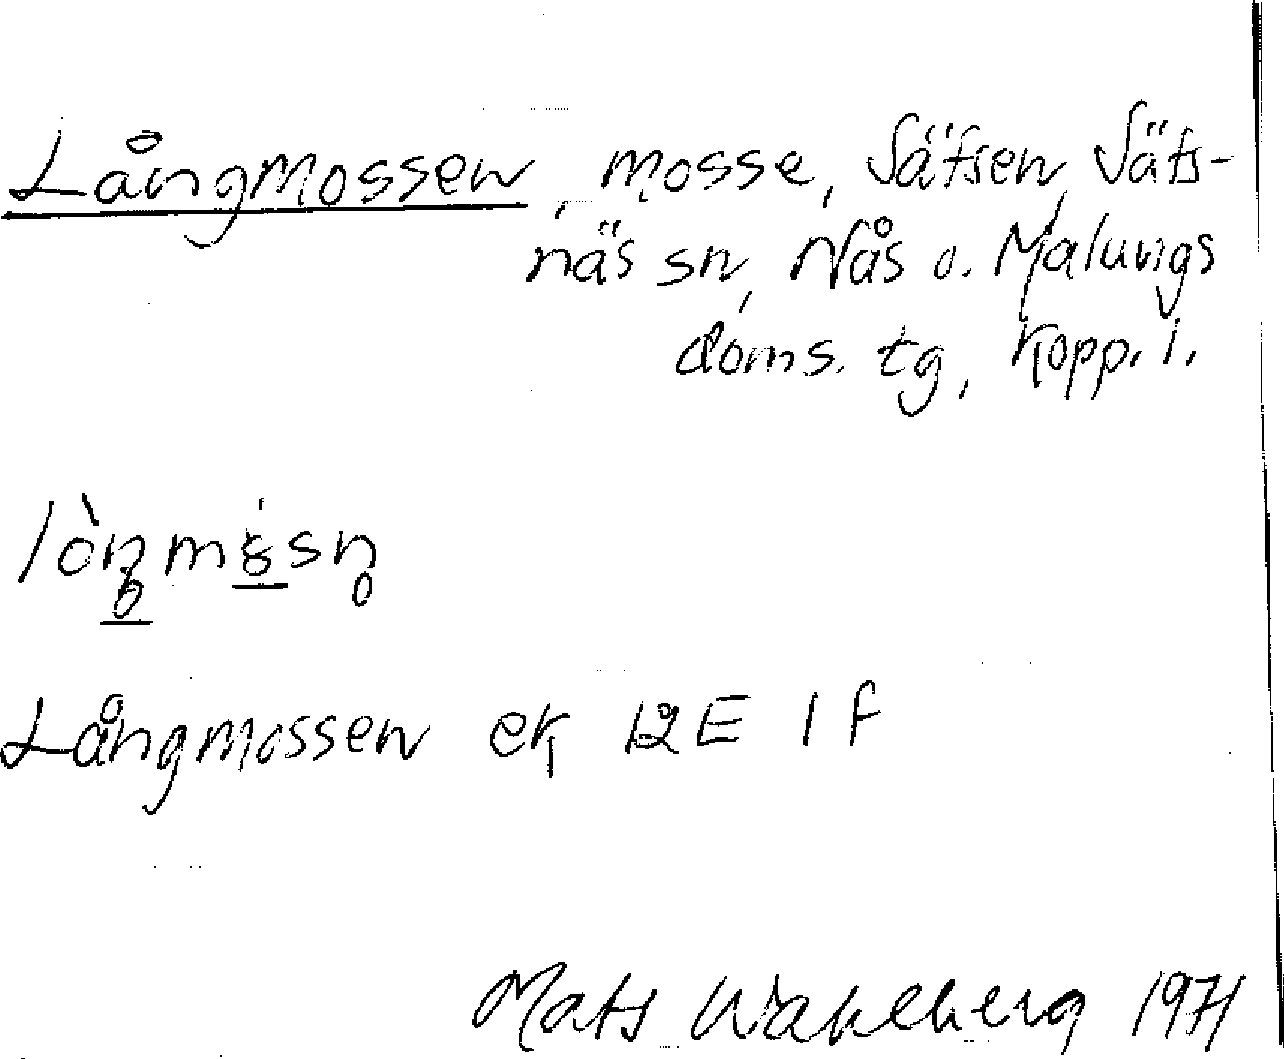 Långmossen, mosse, Sätsen, Säfs-
näs sn, Nås o. Malungs
doms. tg, Kopp. l.
Långmossen ek 12E 1f
Mats Wahlberg 1971